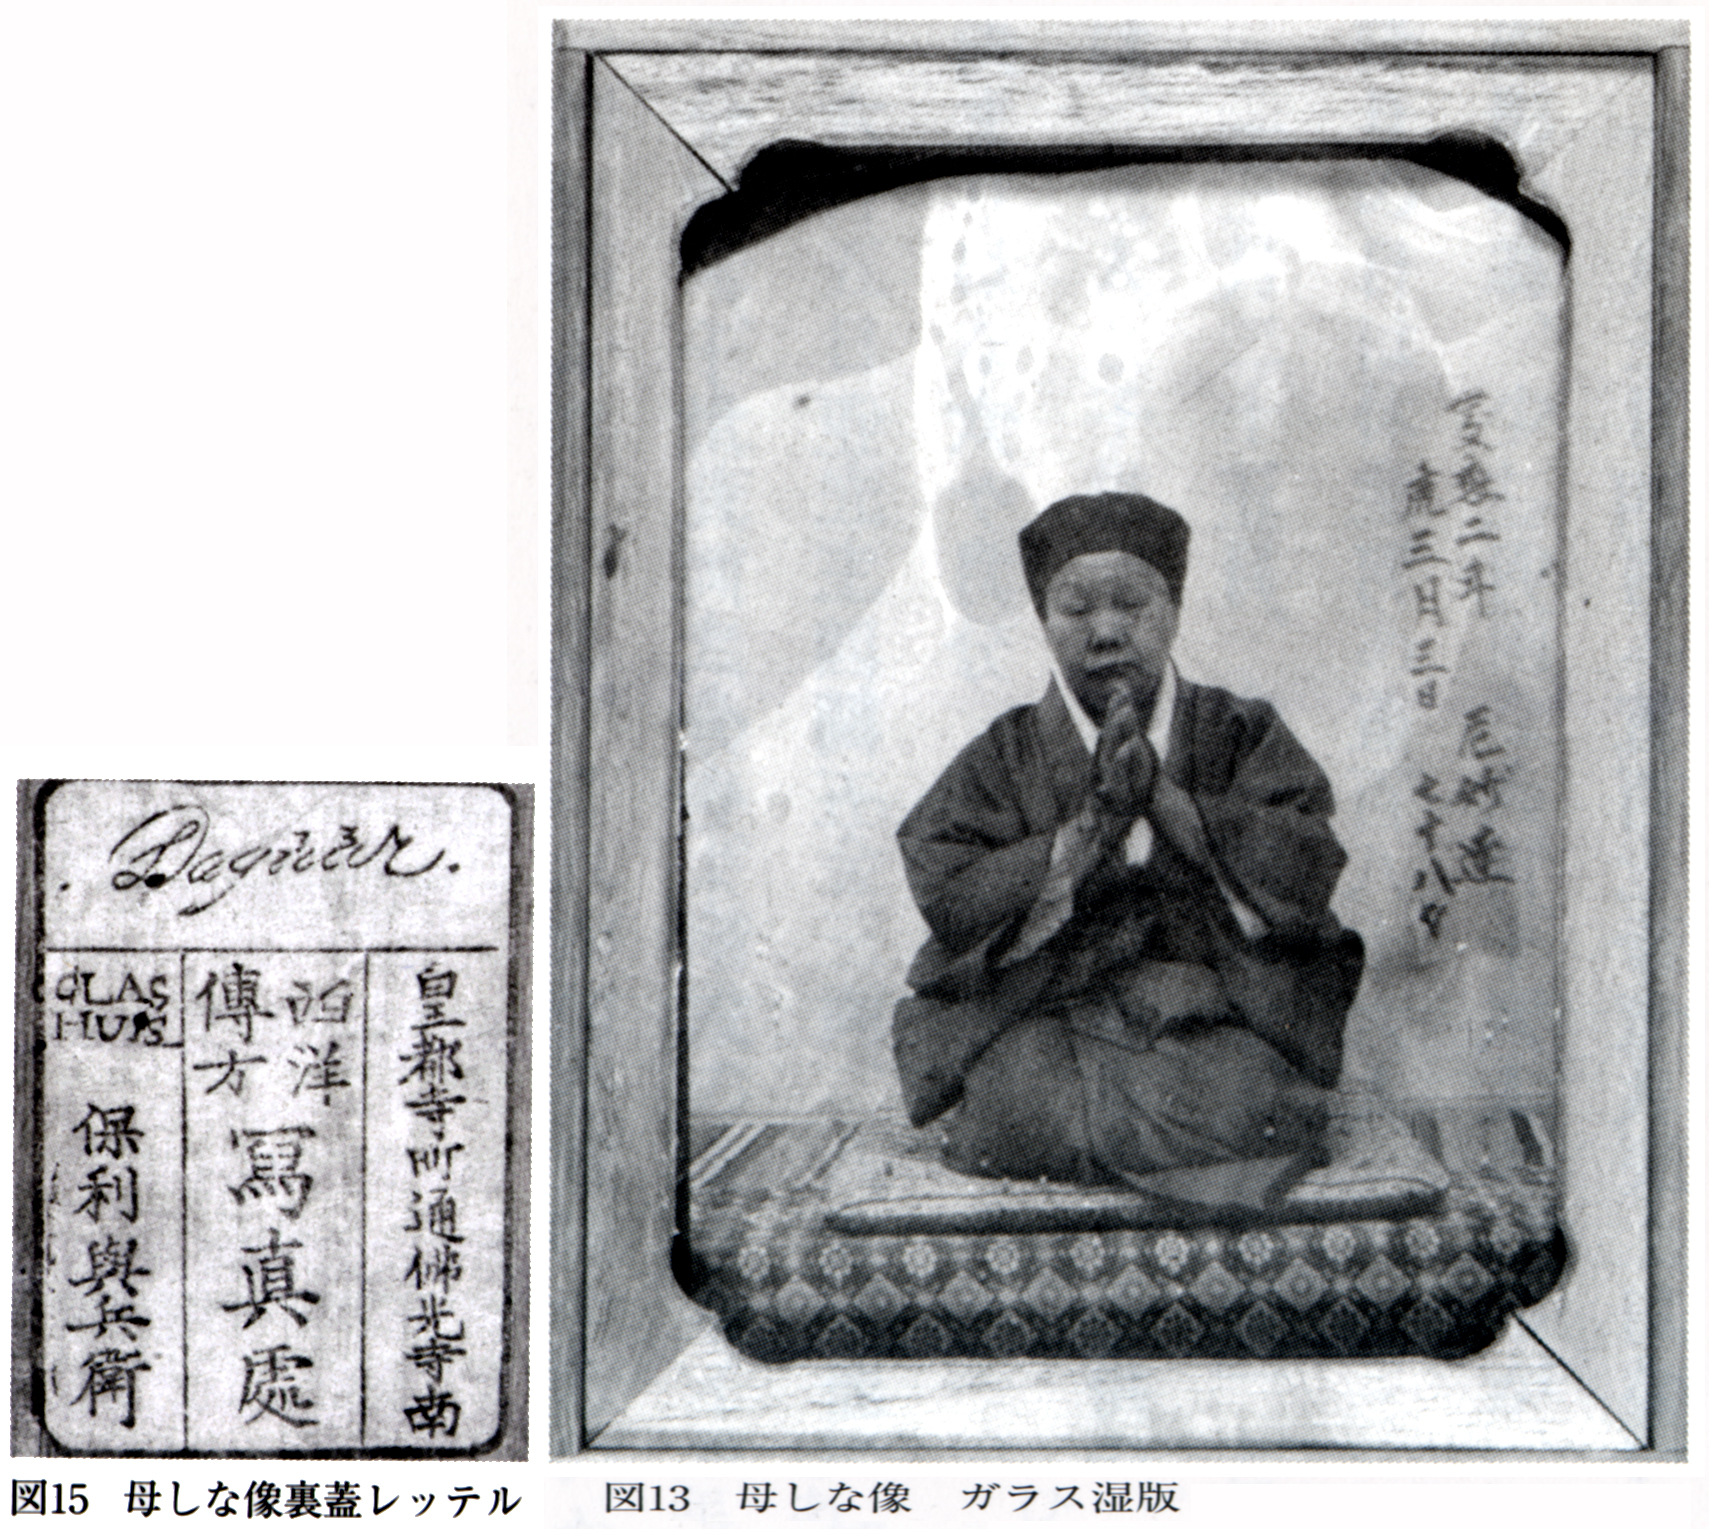 Daguèr.
皇都寺町通佛光寺南
西洋
傳方
寫真處
GLAS
HUIS
保利與兵衛
図15 母しな像裏蓋レッテル
二年
三日
七十八才
図13 母しな像 ガラス湿版